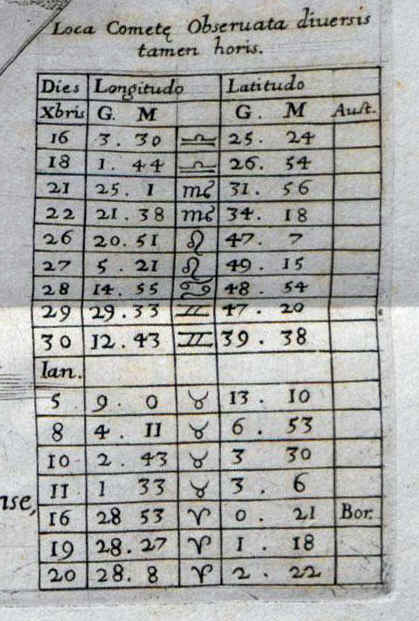 Loca Cometę Obseruata diuersis
tamen horis.
Dies Longitudo Latitudo
Xbris G. M G. M Aust.
16 3. 30 ♎ 25. 24
18 1. 44 ♎ 26. 54
21 25. 1 ♍ 31. 56
22 21. 38 ♍ 34. 18
26 20. 51 ♌ 47. 7
27 5. 21 ♌ 49. 15
28 14. 55 ♋ 48. 54
29 29. 33 ♊ 47. 20
30 12. 43 ♊ 39. 38
Ian.
5 9. 0 ♉ 13. 10
8 4. 11 ♉ 6. 53
10 2. 43 ♉ 3 30
11 1 33 ♉ 3. 6
nse,
16 28 53 ♈ 0. 21 Bor.
19 28. 27 ♈ 1. 18
20 28. 8 ♈ 2. 22